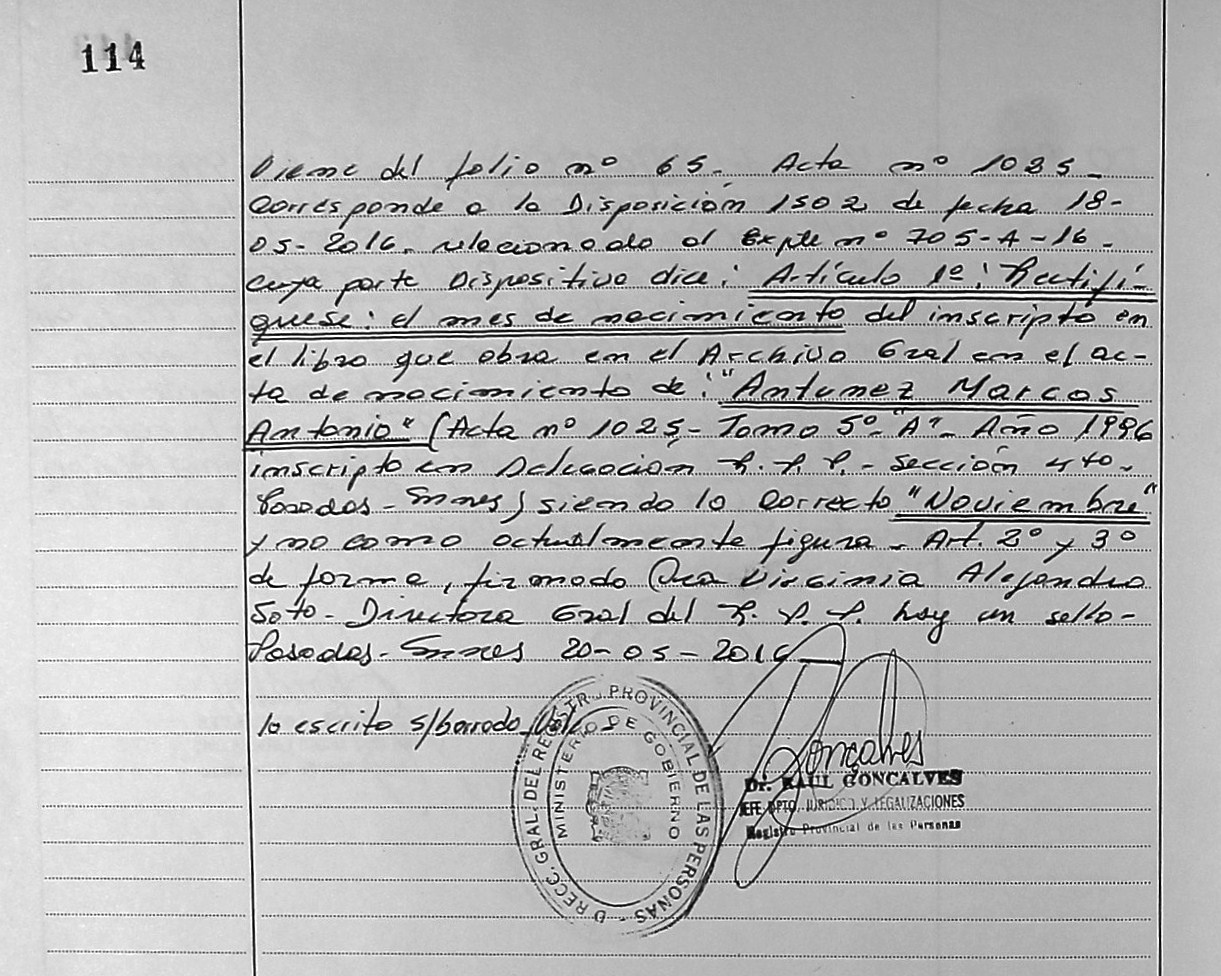 114
Viene del folio nº 65. Acta nº 1025 -
Corresponde a la Disposición 1502 de fecha 18-
05-2016. relacionado al Expte nº 705-A-16 -
cuya parte Dispositiva dice: Artículo 1º: Rectifí-
quese: el mes de nacimiento del inscripto en
el libro que obra en el Archivo Gral en el ac-
ta de nacimiento de: "Antunez Marcos
Antonio" (Acta nº 1025- Tomo 5º "A" - Año 1996
inscripto en Delegación R. P. P. - Sección 4ta.
Posadas - Smnes) siendo lo correcto "Noviembre"
y no como actualmente figura - Art. 2º y 3º
de forma, firmado Dra Virginia Alejandra
Soto - Directora Gral del R. P. P. hay un sello -
Posadas - Smnes 20-05-2016
lo escrito s/borrado Vale
DIRECC. GRAL. DEL REGISTRO PROVINCIAL DE LAS PERSONAS -
MINISTERIO DE GOBIERNO
Goncalves
Dr. RAUL GONCALVES
JEFE DPTO. JURIDICO Y LEGALIZACIONES
Registro Provincial de las Personas